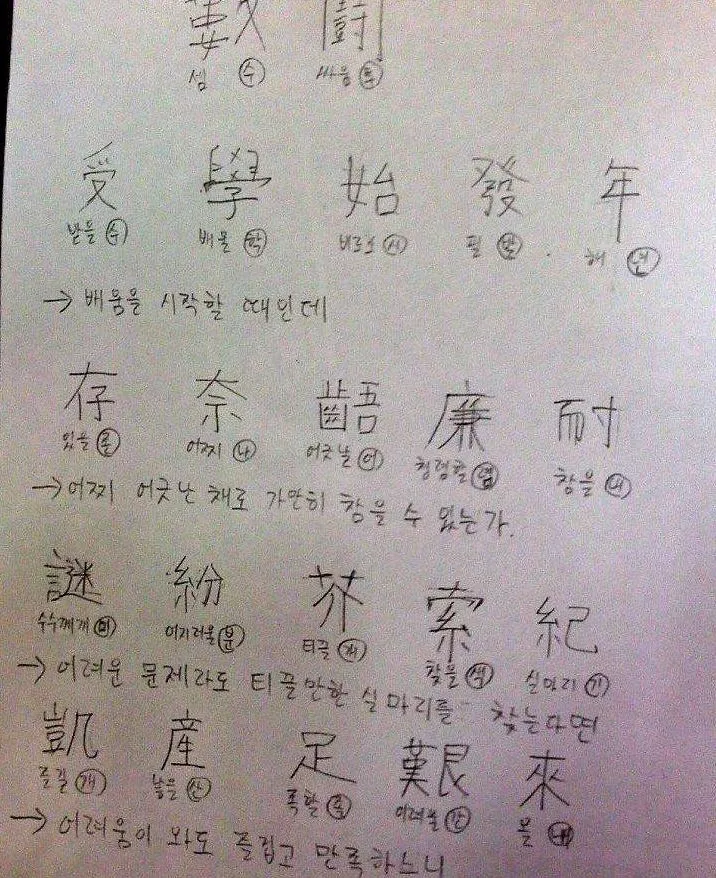 數 鬪
셈 수 싸움 투
受 學 始 發 年
받을 수 배울 학 비로소 시 필 발 해 년
→ 배움을 시작할 때인데
存 奈 齬 廉 耐
있을 존 어찌 나 어긋날 어 청렴할 렴 참을 내
→ 어찌 어긋난 채로 가만히 참을 수 있는가.
謎 紛 芥 索 紀
수수께끼 미 어지러울 분 티끌 개 찾을 색 실마리 기
→ 어려운 문제라도 티끌만한 실마리를 찾는다면
凱 産 足 艱 來
즐길 개 낳을 산 족할 족 어려울 간 올 래
→ 어려움이 와도 즐겁고 만족하느니